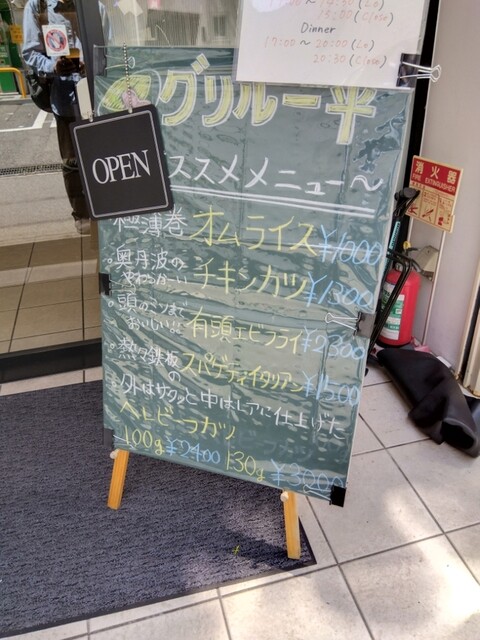 15:00 (Close)
Dinner
17:00 ~ 20:00 (Lo)
20:30 (Close)
グリル一平
OPEN
ススメメニュー〜
極薄巻 オムライス ¥1000
奥丹波の
やわらかーい チキンカツ ¥1300
頭のミソまで
おいしいよ 有頭エビフライ ¥2300
熱々鉄板
の スパゲティイタリアン ¥1500
外はサクッと中はレアに仕上げた
ヘレビーフカツ
100g ¥2400 130g ¥3200
消火器
FIRE EXTINGUISHER